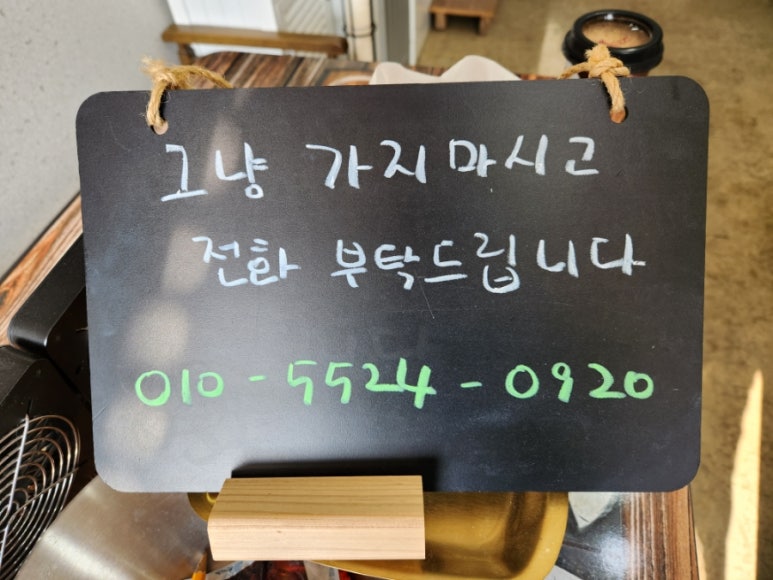 그냥 가지마시고
전화 부탁드립니다
010-5524-0920